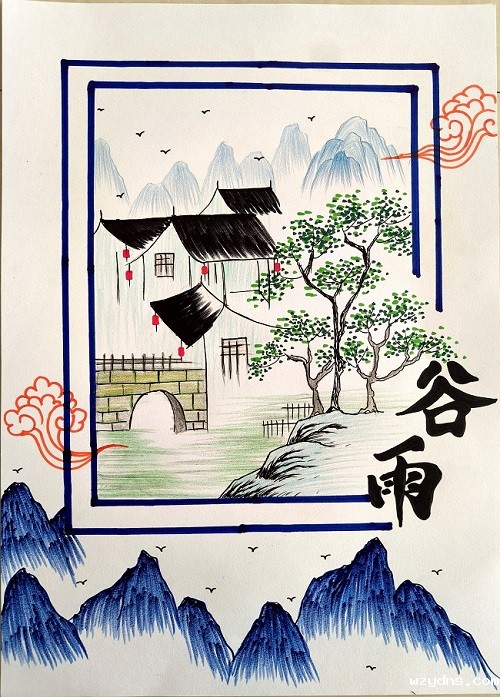 谷
雨
wzydns.com